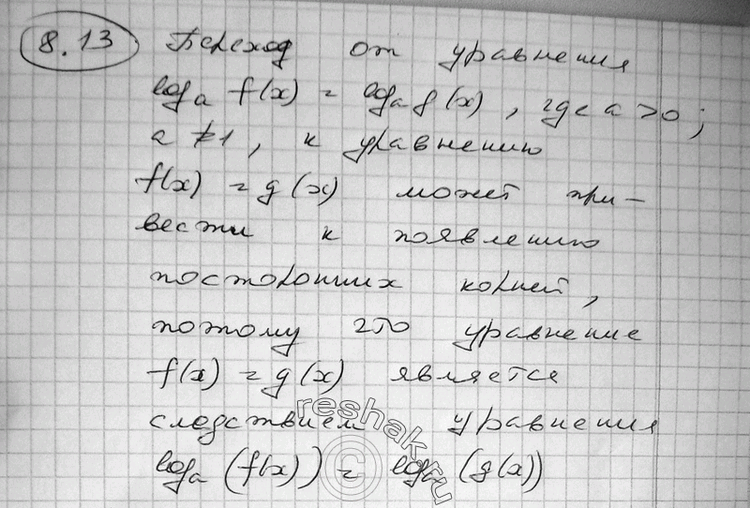 8.13 Переход от уравнения
log_a f(x) = log_a g(x), где a > 0;
a ≠ 1, к уравнению
f(x) = g(x) может при-
вести к появлению
посторонних корней,
потому что уравнение
f(x) = g(x) является
следствием уравнения
log_a (f(x)) = log_a (g(x))
reshak.ru
©